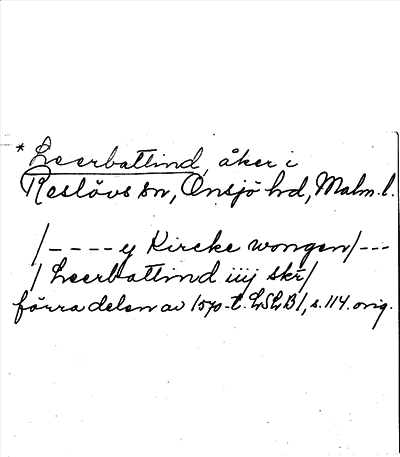 * Leerbattind, åker i
Reslövs sn, Onsjö hd, Malm. l.
/---- ey Kircke wongen/---
/ Leerbattind iiij skr/
förra delen av 1570-t. LSLB/, s. 114. orig.